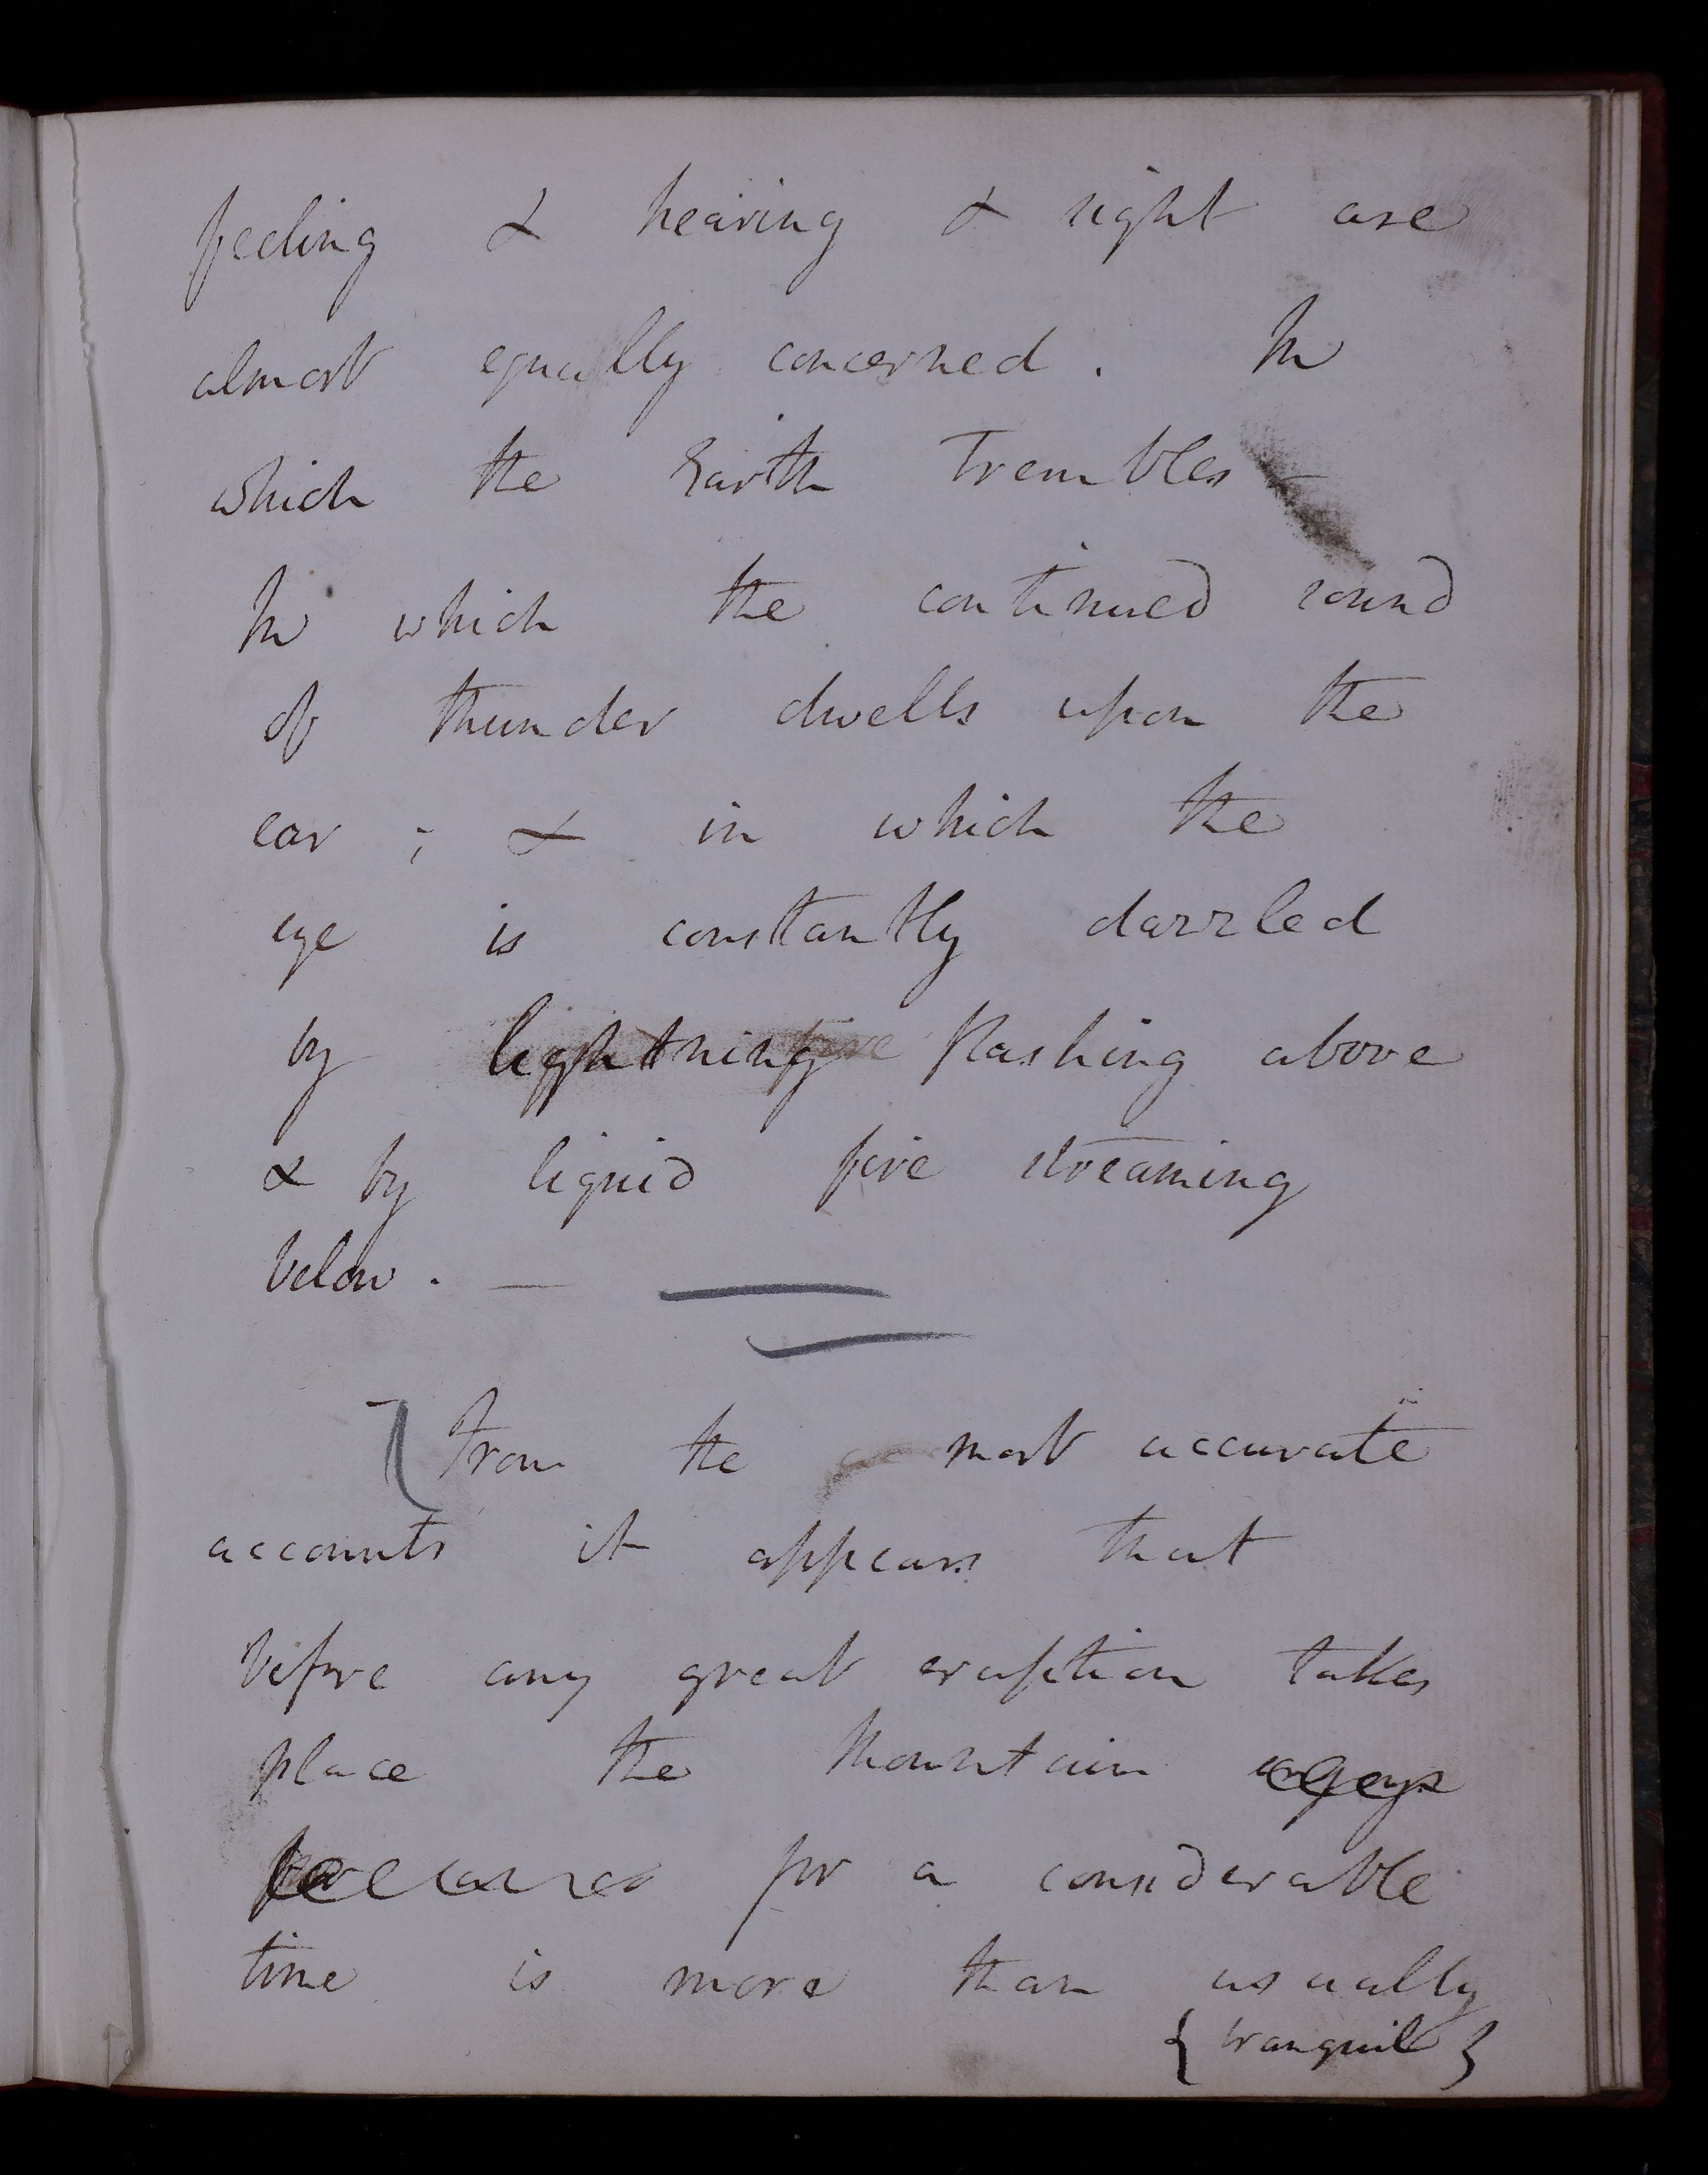 feeling & hearing & sight are
almost equally concerned. In
which the Earth Trembles –
In which the continued sound
of thunder dwells upon the
ear ; & in which the
eye is constantly dazzled
by lightning flashing above
& by liquid fire streaming
below. —
From the most accurate
accounts it appears that
before any great eruption takes
place the Mountain
for a considerable
time is more than usually
{ tranquil }